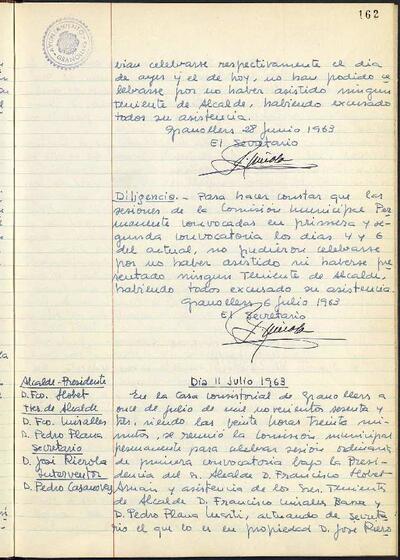 162
AYUNTAMIENTO GRANOLLERS
vian celebrarse respectivamente el dia
de ayer y el de hoy, no han podido ce-
lebrarse por no haber asistido ningun
teniente de Alcalde, habiendo excusado
todos su asistencia.
Granollers 28 Junio 1963
El Secretario
Diligencia.- Para hacer constar que las
sesiones de la Comisión Municipal Per-
manente convocadas en primera y se-
gunda convocatoria los dias 4 y
del actual, no pudieron celebrarse
por no haber asistido ni haberse pre-
sentado ningun Teniente de Alcalde,
habiendo todos excusado su asistencia.
Granollers 6 Julio 1963
El Secretario
Dia 11 Julio 1963
Alcalde-Presidente
D. Fco. Llobet
Tts. de Alcalde
D. Fco. Miralles
D. Pedro Plana
Secretario
D. José Rierola
Interventor
D. Pedro Casanovas
En la Casa Consistorial de Granollers a
once de julio de mil novecientos sesenta y
tres, siendo las veinte horas treinta mi-
nutos, se reunió la Comisión municipal
permanente para celebrar sesión ordinaria
de primera convocatoria bajo la Presi-
dencia del Sr. Alcalde D. Francisco Llobet
Arnan y asistencia de los Sres. Tenientes
de Alcalde D. Francisco Miralles y
D. Pedro Plana, actuando de Secreta-
rio el que lo es en propiedad D. José Riero